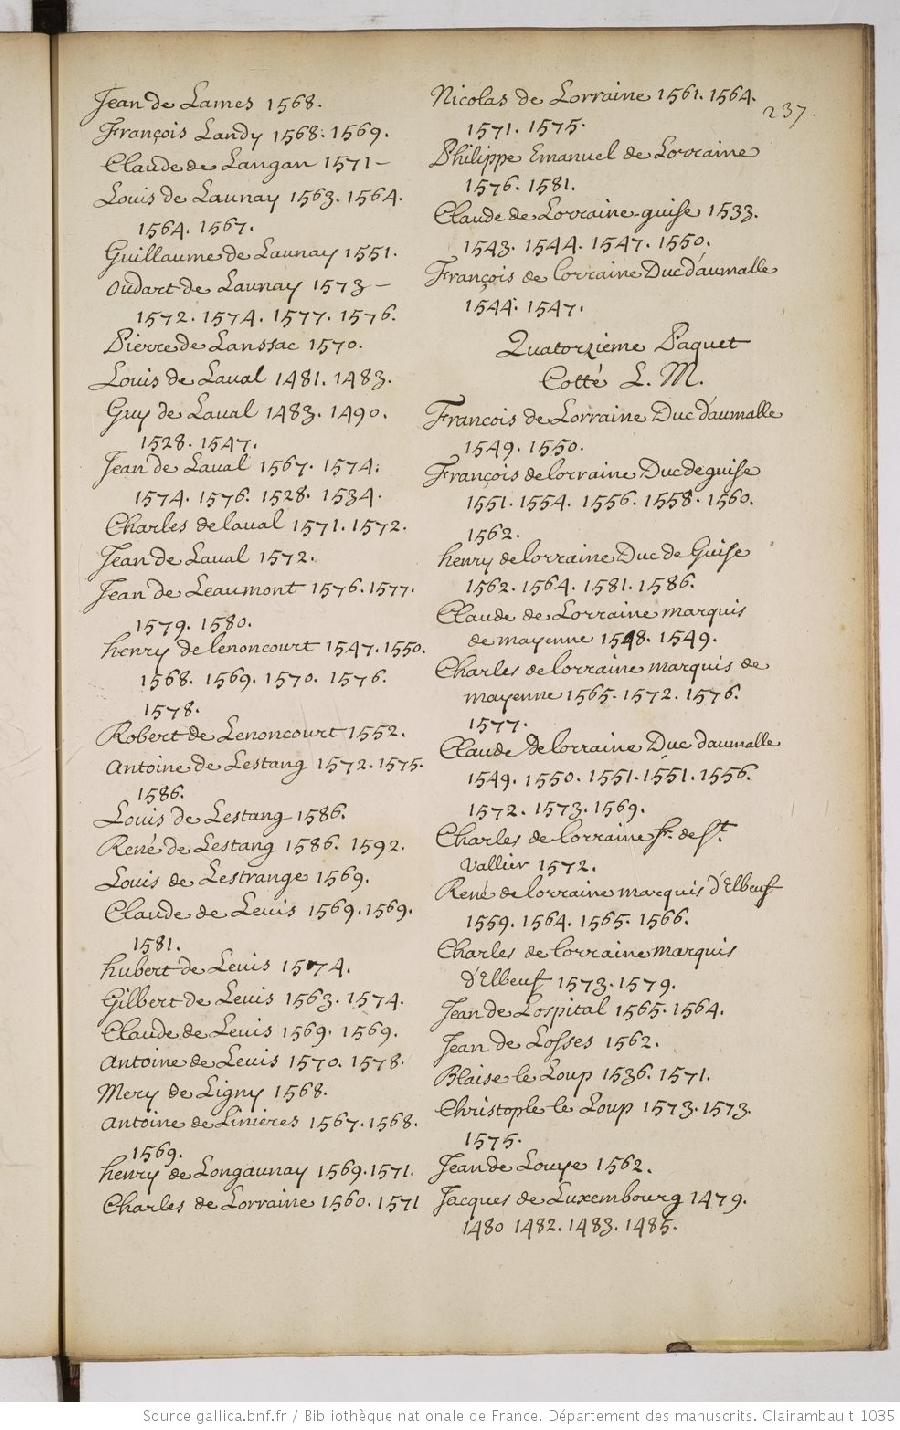 Jean de Lames 1568.
François Landy 1568. 1569.
Claude de Langan 1571 -
Louis de Launay 1563. 1564.
1564. 1567.
Guillaume de Launay 1551.
oudart de Launay 1573 -
1572. 1574. 1577. 1576.
Pierre de Lanssac 1570.
Louis de Laval 1481. 1483.
Guy de Laval 1483. 1490.
1528. 1547.
Jean de Laval 1567. 1574.
1574. 1576. 1528. 1534.
Charles de laval 1571. 1572.
Jean de Laval 1572.
Jean de Leaumont 1576. 1577.
1579. 1580.
henry de lenoncourt 1547. 1550.
1568. 1569. 1570. 1576.
1578.
Robert de Lenoncourt 1552.
Antoine de Lestang 1572. 1575.
1586.
Louis de Lestang 1586.
René de Lestang 1586. 1592.
Louis de Lestrange 1569.
Claude de Levis 1569. 1569.
1581.
hubert de Levis 1574.
Gilbert de Levis 1563. 1574.
Claude de Levis 1569. 1569.
Antoine de Levis 1570. 1578.
Mery de Ligny 1568.
Antoine de Linieres 1567. 1568.
1569.
henry de Longaunay 1569. 1571.
Charles de Lorraine 1560. 1571
237
Nicolas de Lorraine 1561. 1564.
1571. 1575.
Philippe Emanuel de Lorraine
1576. 1581.
Claude de Lorraine-guise 1533.
1543. 1544. 1547. 1550.
François de lorraine Duc d'aumalle
1544. 1547.
Quatorzieme Paquet
Cotté L. M.
François de Lorraine Duc d'aumalle
1549. 1550.
François de lorraine Duc de guise
1551. 1554. 1556. 1558. 1560.
1562.
henry de lorraine Duc de Guise
1562. 1564. 1581. 1586.
Claude de Lorraine marquis
de mayenne 1548. 1549.
Charles de lorraine marquis de
mayenne 1565. 1572. 1576.
1577.
Claude de lorraine Duc d'aumalle
1549. 1550. 1551. 1551. 1556.
1572. 1573. 1569.
Charles de lorraine Sr. de St.
Vallier 1572.
René de lorraine marquis d'Elbeuf
1559. 1564. 1565. 1566.
Charles de lorraine marquis
d'Elbeuf 1573. 1579.
Jean de Lospital 1565. 1564.
Jean de Losses 1562.
Blaise le Loup 1536. 1571.
Christople le Loup 1573. 1573.
1575.
Jean de Louye 1562.
Jacques de Luxembourg 1479.
1480 1482. 1483. 1485.
Source gallica.bnf.fr / Bibliothèque nationale de France. Département des manuscrits. Clairambault 1035